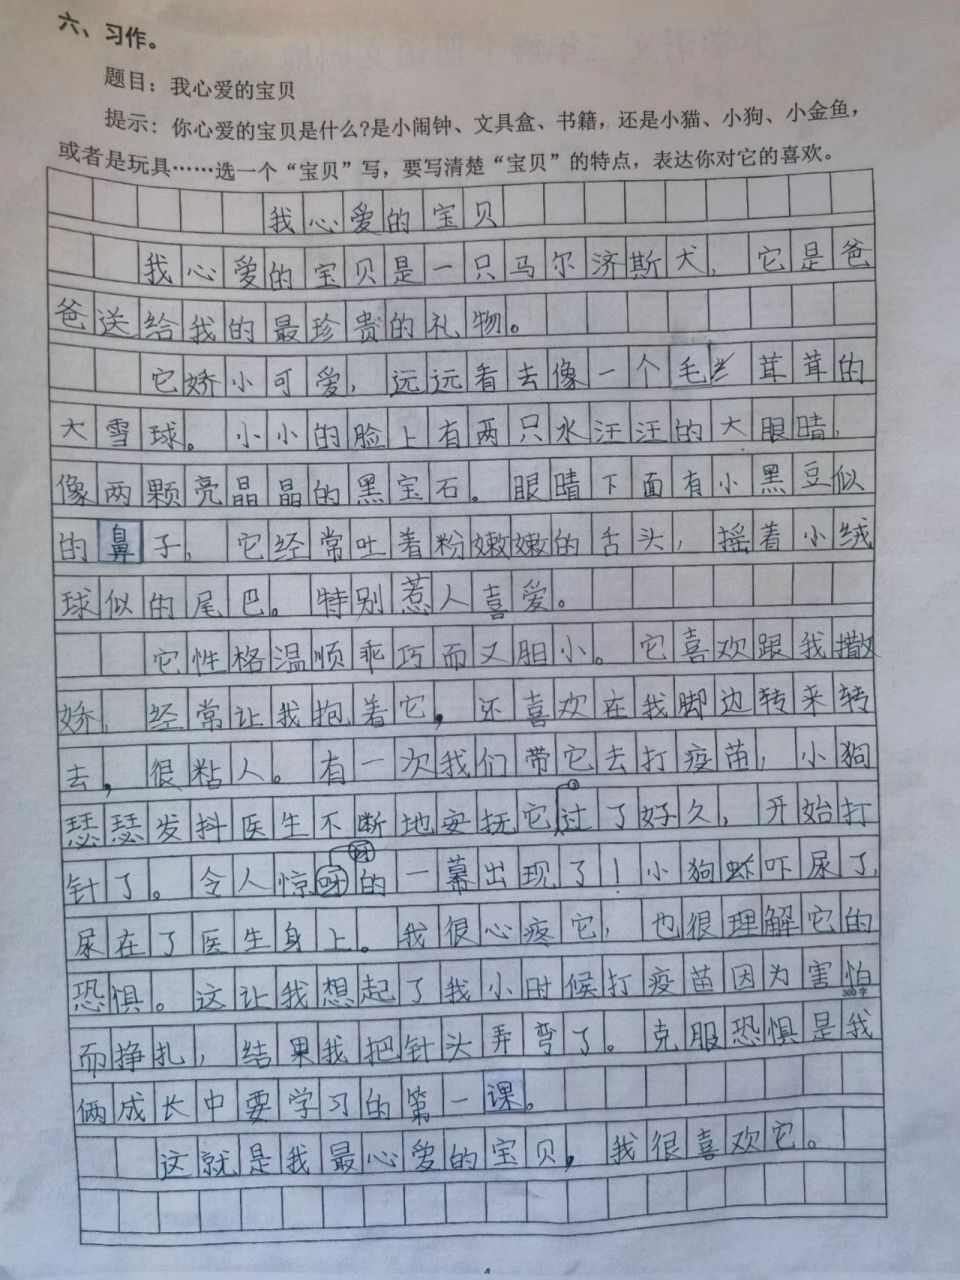 六、习作。
题目：我心爱的宝贝
提示：你心爱的宝贝是什么?是小闹钟、文具盒、书籍，还是小猫、小狗、小金鱼，
或者是玩具……选一个“宝贝”写，要写清楚“宝贝”的特点，表达你对它的喜欢。
我心爱的宝贝
我心爱的宝贝是一只马尔济斯犬，它是爸
爸送给我的最珍贵的礼物。
它娇小可爱，远远看去像一个毛茸茸的
大雪球。小小的脸上有两只水汪汪的大眼睛，
像两颗亮晶晶的黑宝石。眼睛下面有小黑豆似
的鼻子，它经常吐着粉嫩嫩的舌头，摇着小绒
球似的尾巴。特别惹人喜爱。
它性格温顺乖巧而又胆小。它喜欢跟我撒
娇，经常让我抱着它，还喜欢在我脚边转来转
去，很粘人。有一次我们带它去打疫苗，小狗
瑟瑟发抖医生不断地安抚它。过了好久，开始打
针了。令人惊讶的一幕出现了！小狗吓尿了，
尿在了医生身上。我很心疼它，也很理解它的
恐惧。这让我想起了我小时候打疫苗因为害怕
300字
而挣扎，结果我把针头弄弯了。克服恐惧是我
俩成长中要学习的第一课。
这就是我最心爱的宝贝，我很喜欢它。